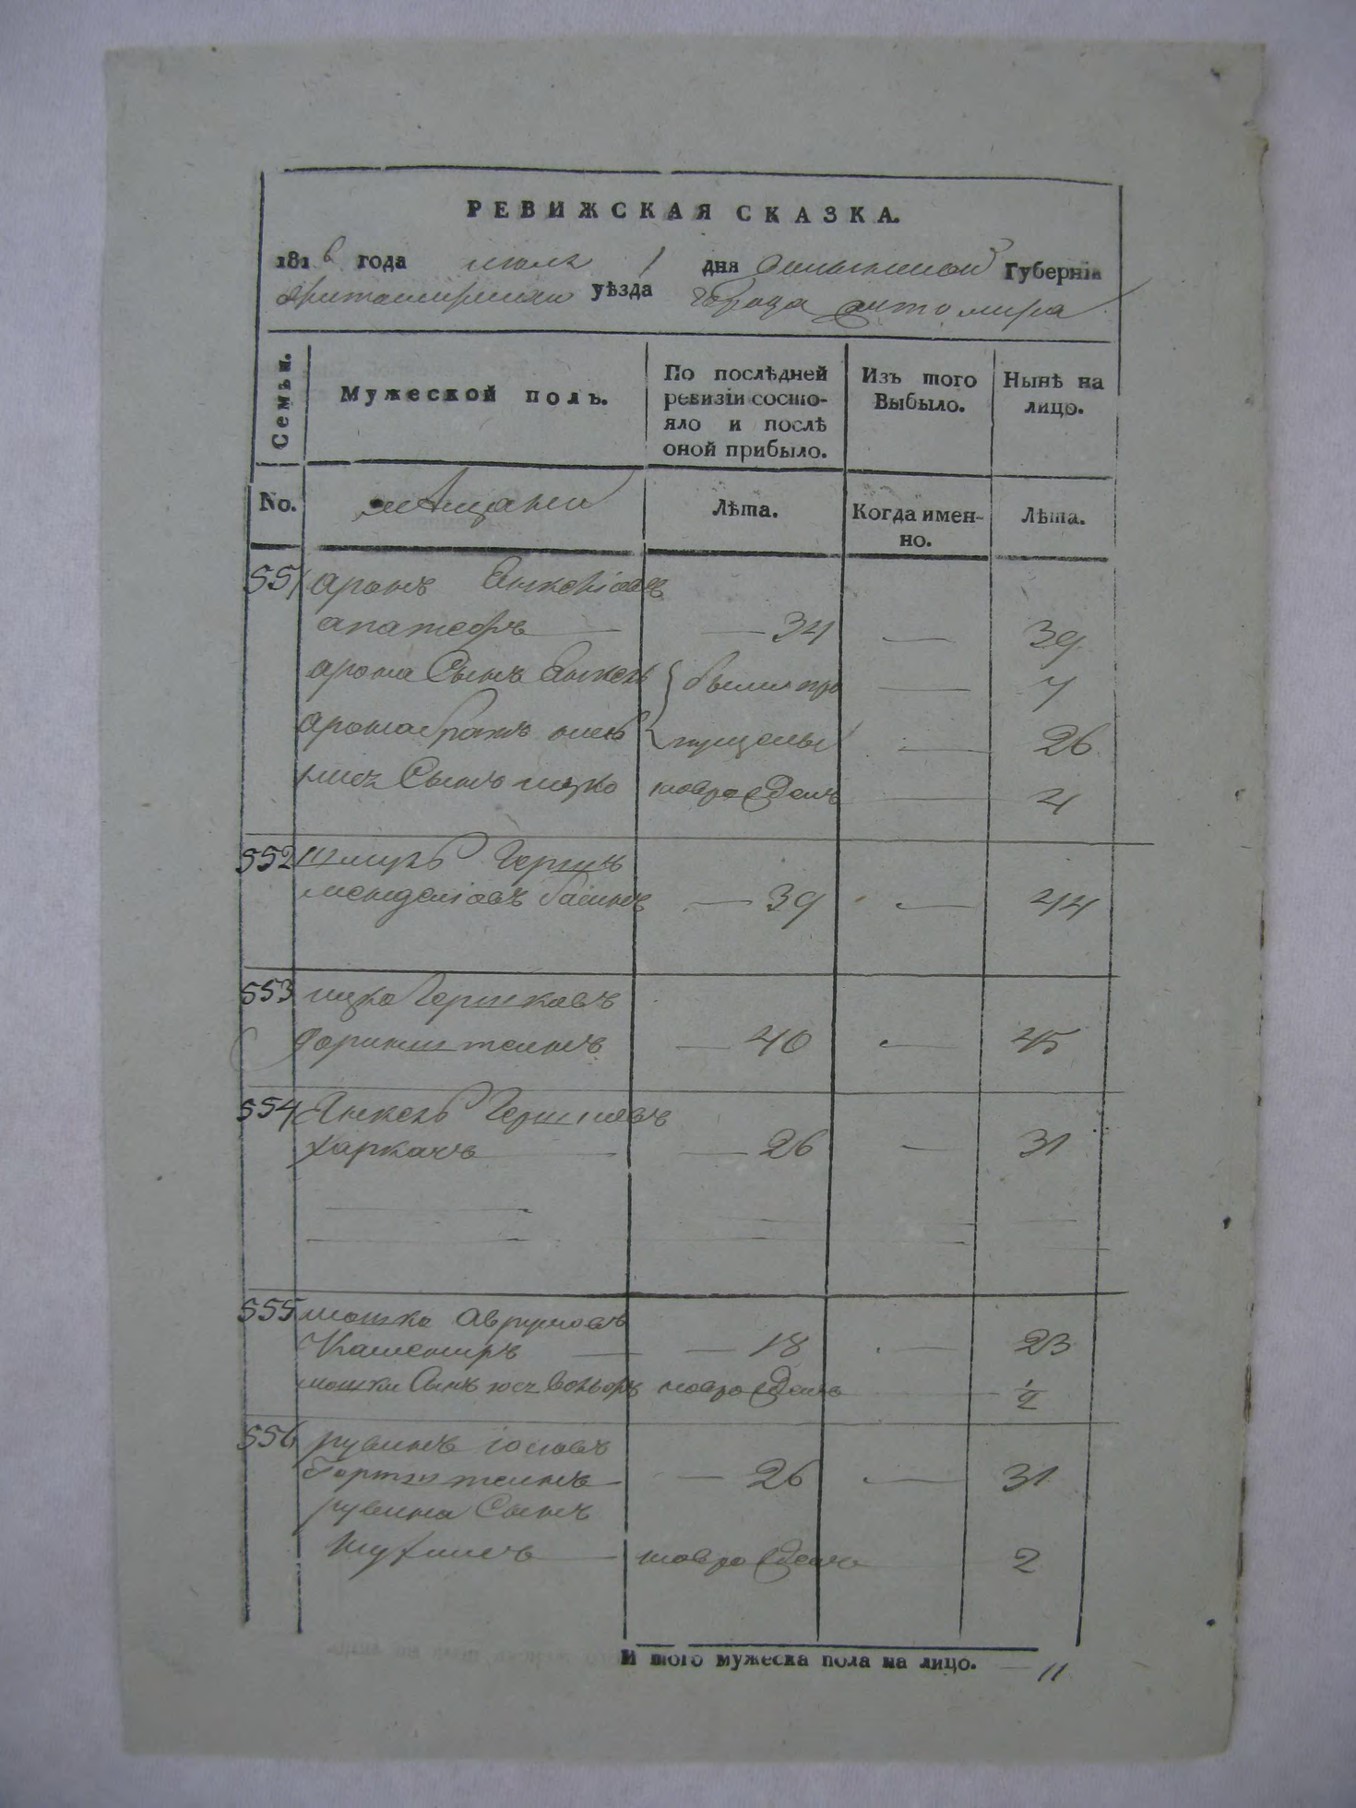 РЕВИЖСКАЯ СКАЗКА.
1816 года июля 1 дня Волынской Губернія
Житомирскаго уѣзда города Житомира
Семьи. Мужеской полъ. По послѣдней ревизіи состояло и послѣ оной прибыло. Изъ того Выбыло. Нынѣ на лицо.
No. мѣщане Лѣта. Когда именно. Лѣта.
551 аронъ Янкеліовъ
— 34 — 39
арона Сынъ Янкель были про — 7
арона братъ пущены — 26
Сынъ ицко новорожденъ — 4
552 шмуль Герш
менделіовъ — 39 — 44
553 ицко Гершковъ
— 40 — 45
554 Янкель Гершковъ
харкачъ — 26 — 31
555 мошко аврумовъ
— 18 — 23
мошки Сынъ новорожденъ — 1/2
556 рувинъ іосіовъ
— 26 — 31
рувина Сынъ
новорожденъ 2
И того мужеска пола на лицо. — 11